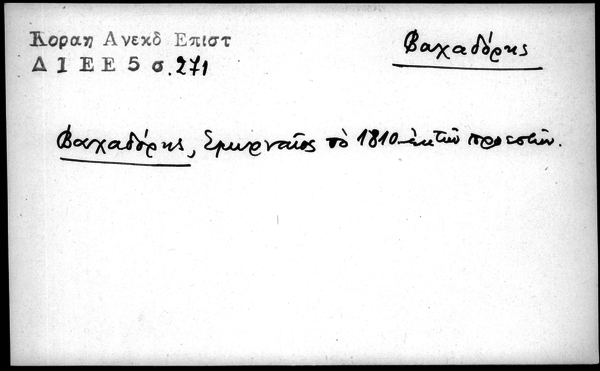 Κοραη Ανεκδ Επιστ
Δ Ι Ε Ε 5 σ. 271
Βαχαδόρης
Βαχαδόρης, Σμυρναῖος τὸ 1810 ἐκ τῶν προεστών.